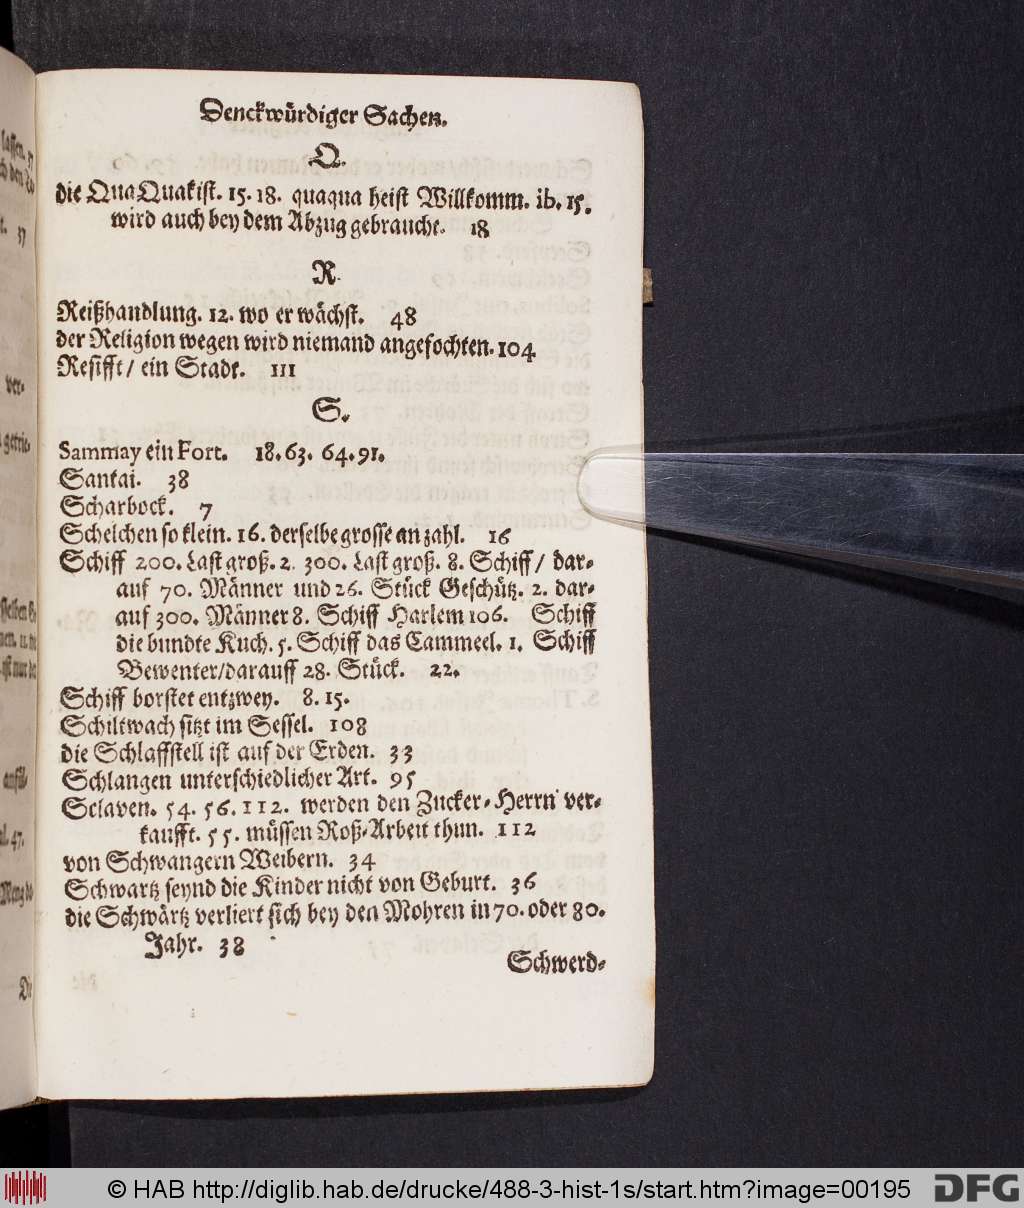 Denckwürdiger Sachen.
Q.
die QuaQuak ist. 15. 18. quaqua heist Willkomm. ib. 15.
wird auch bey dem Abzug gebraucht. 18
R.
Reißhandlung. 12. wo er wächst. 48
der Religion wegen wird niemand angefochten. 104
Resifft / ein Stadt. 111
S.
Sammay ein Fort. 18. 63. 64. 91.
Santai. 38
Scharbock. 7
Scheichen so klein. 16. derselbe grosse anzahl. 16
Schiff 200. Last groß. 2. 300. Last groß. 8. Schiff / dar-
auf 70. Männer und 26. Stück Geschütz. 2. dar-
auf 300. Männer 8. Schiff Harlem 106. Schiff
die bundte Kuch. 5. Schiff das Cammeel. 1. Schiff
Bewenter / darauff 28. Stück. 22.
Schiff borstet entzwey. 8. 15.
Schiltwach sitzt im Sessel. 108
die Schlaffstell ist auf der Erden. 33
Schlangen unterschiedlicher Art. 95
Sclaven. 54. 56. 112. werden den Zucker-Herrn ver-
kaufft. 55. müssen Roß-Arbeit thun. 112
von Schwangern Weibern. 34
Schwartz seynd die Kinder nicht von Geburt. 36
die Schwärtz verliert sich bey den Mohren in 70. oder 80.
Jahr. 38
Schwerd-
© HAB http://diglib.hab.de/drucke/488-3-hist-1s/start.htm?image=00195
DFG